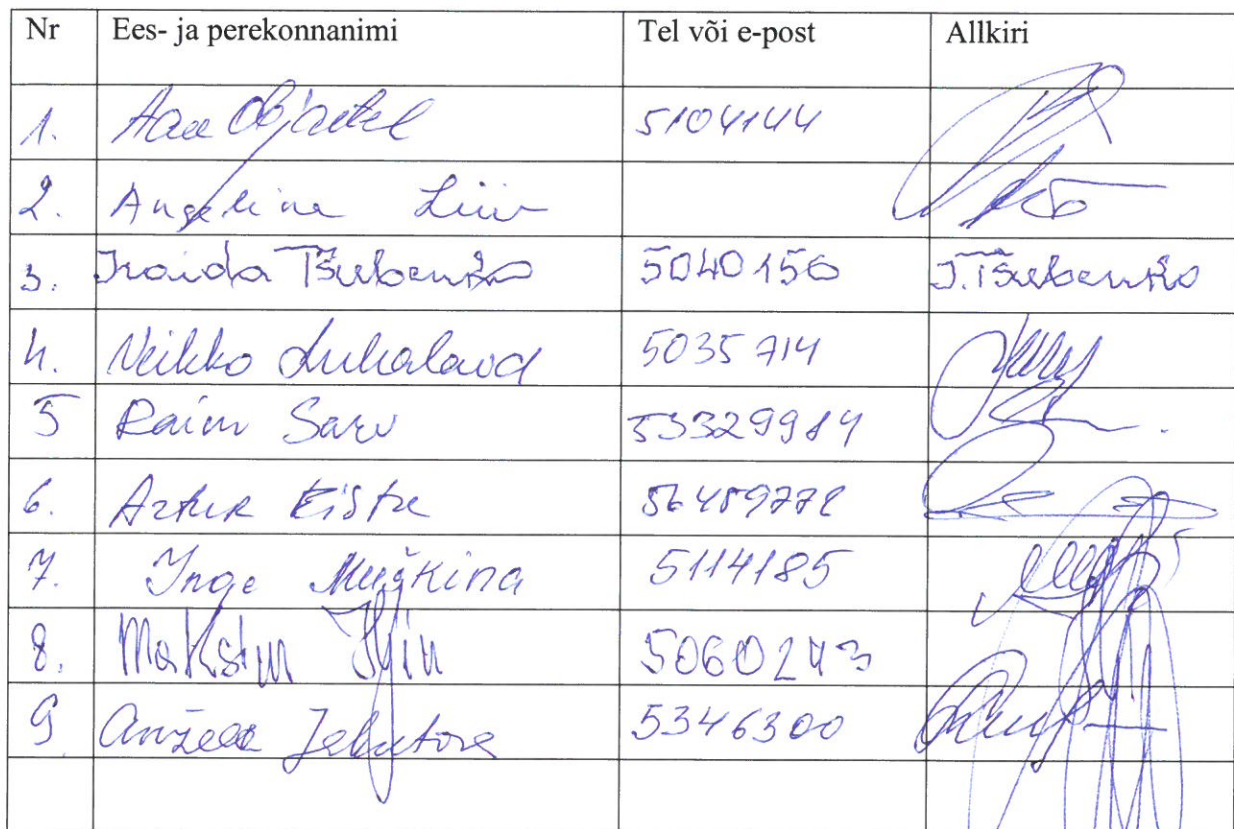 Nr Ees- ja perekonnanimi Tel või e-post Allkiri
1. Aae Objartel 5104144
2. Angelina Liiv
3. Iraida Tšubenko 5040156 I.Tšubenko
4. Veikko Luhalaid 5035714
5 Raim Sarv 53329984
6. Artur Eiste 56489778
7. Inge Muškina 5114185
8. Maksim Iljin 5060243
9 Anžela Jakutova 5346300